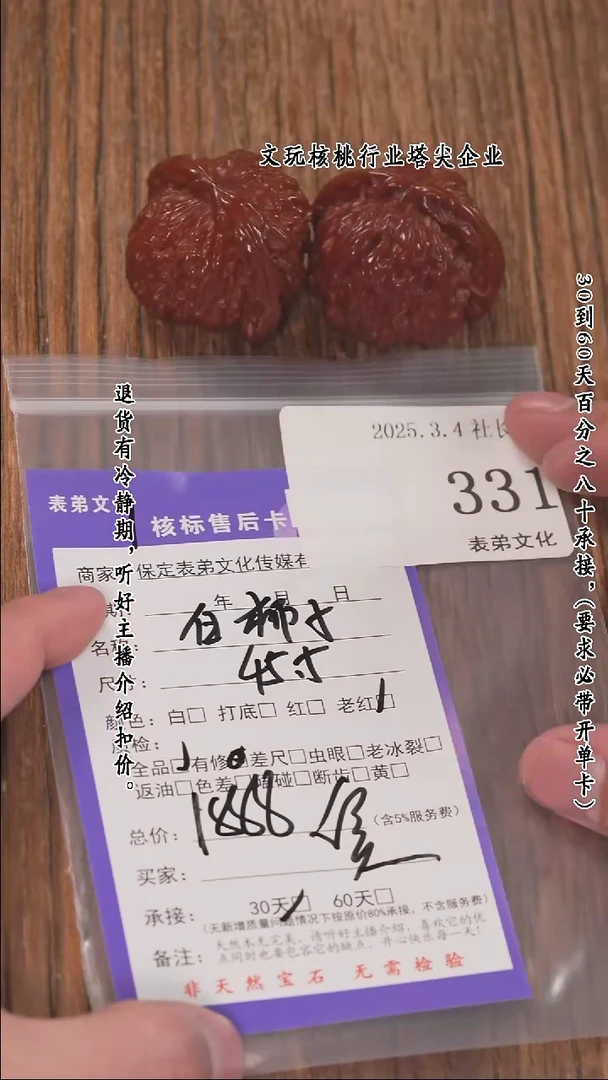 文玩核桃行业塔尖企业
30到60天百分之八十承接，(要求必带开单卡)
退货有冷静期，听好主播介绍扣价。
2025.3.4 社长
331
表弟文化
表弟文
核标售后卡
商家 保定表弟文化传媒有
期: 年 月 日
名称: 白狮子
尺寸: 45寸
颜色: 白□ 打底□ 红□ 老红□
质检:
全品□有修□差尺□虫眼□老冰裂□
返油□色差□磕碰□断齿□黄□
总价: 1888 (含5%服务费)
买家:
承接: 30天□ 60天□
(无新增质量问题情况下按原价80%承接，不含服务费)
备注: 天然本无完美，请听好主播介绍，喜欢它的优
点同时也要包容它的缺点，开心快乐每一天!
非天然宝石 无需检验